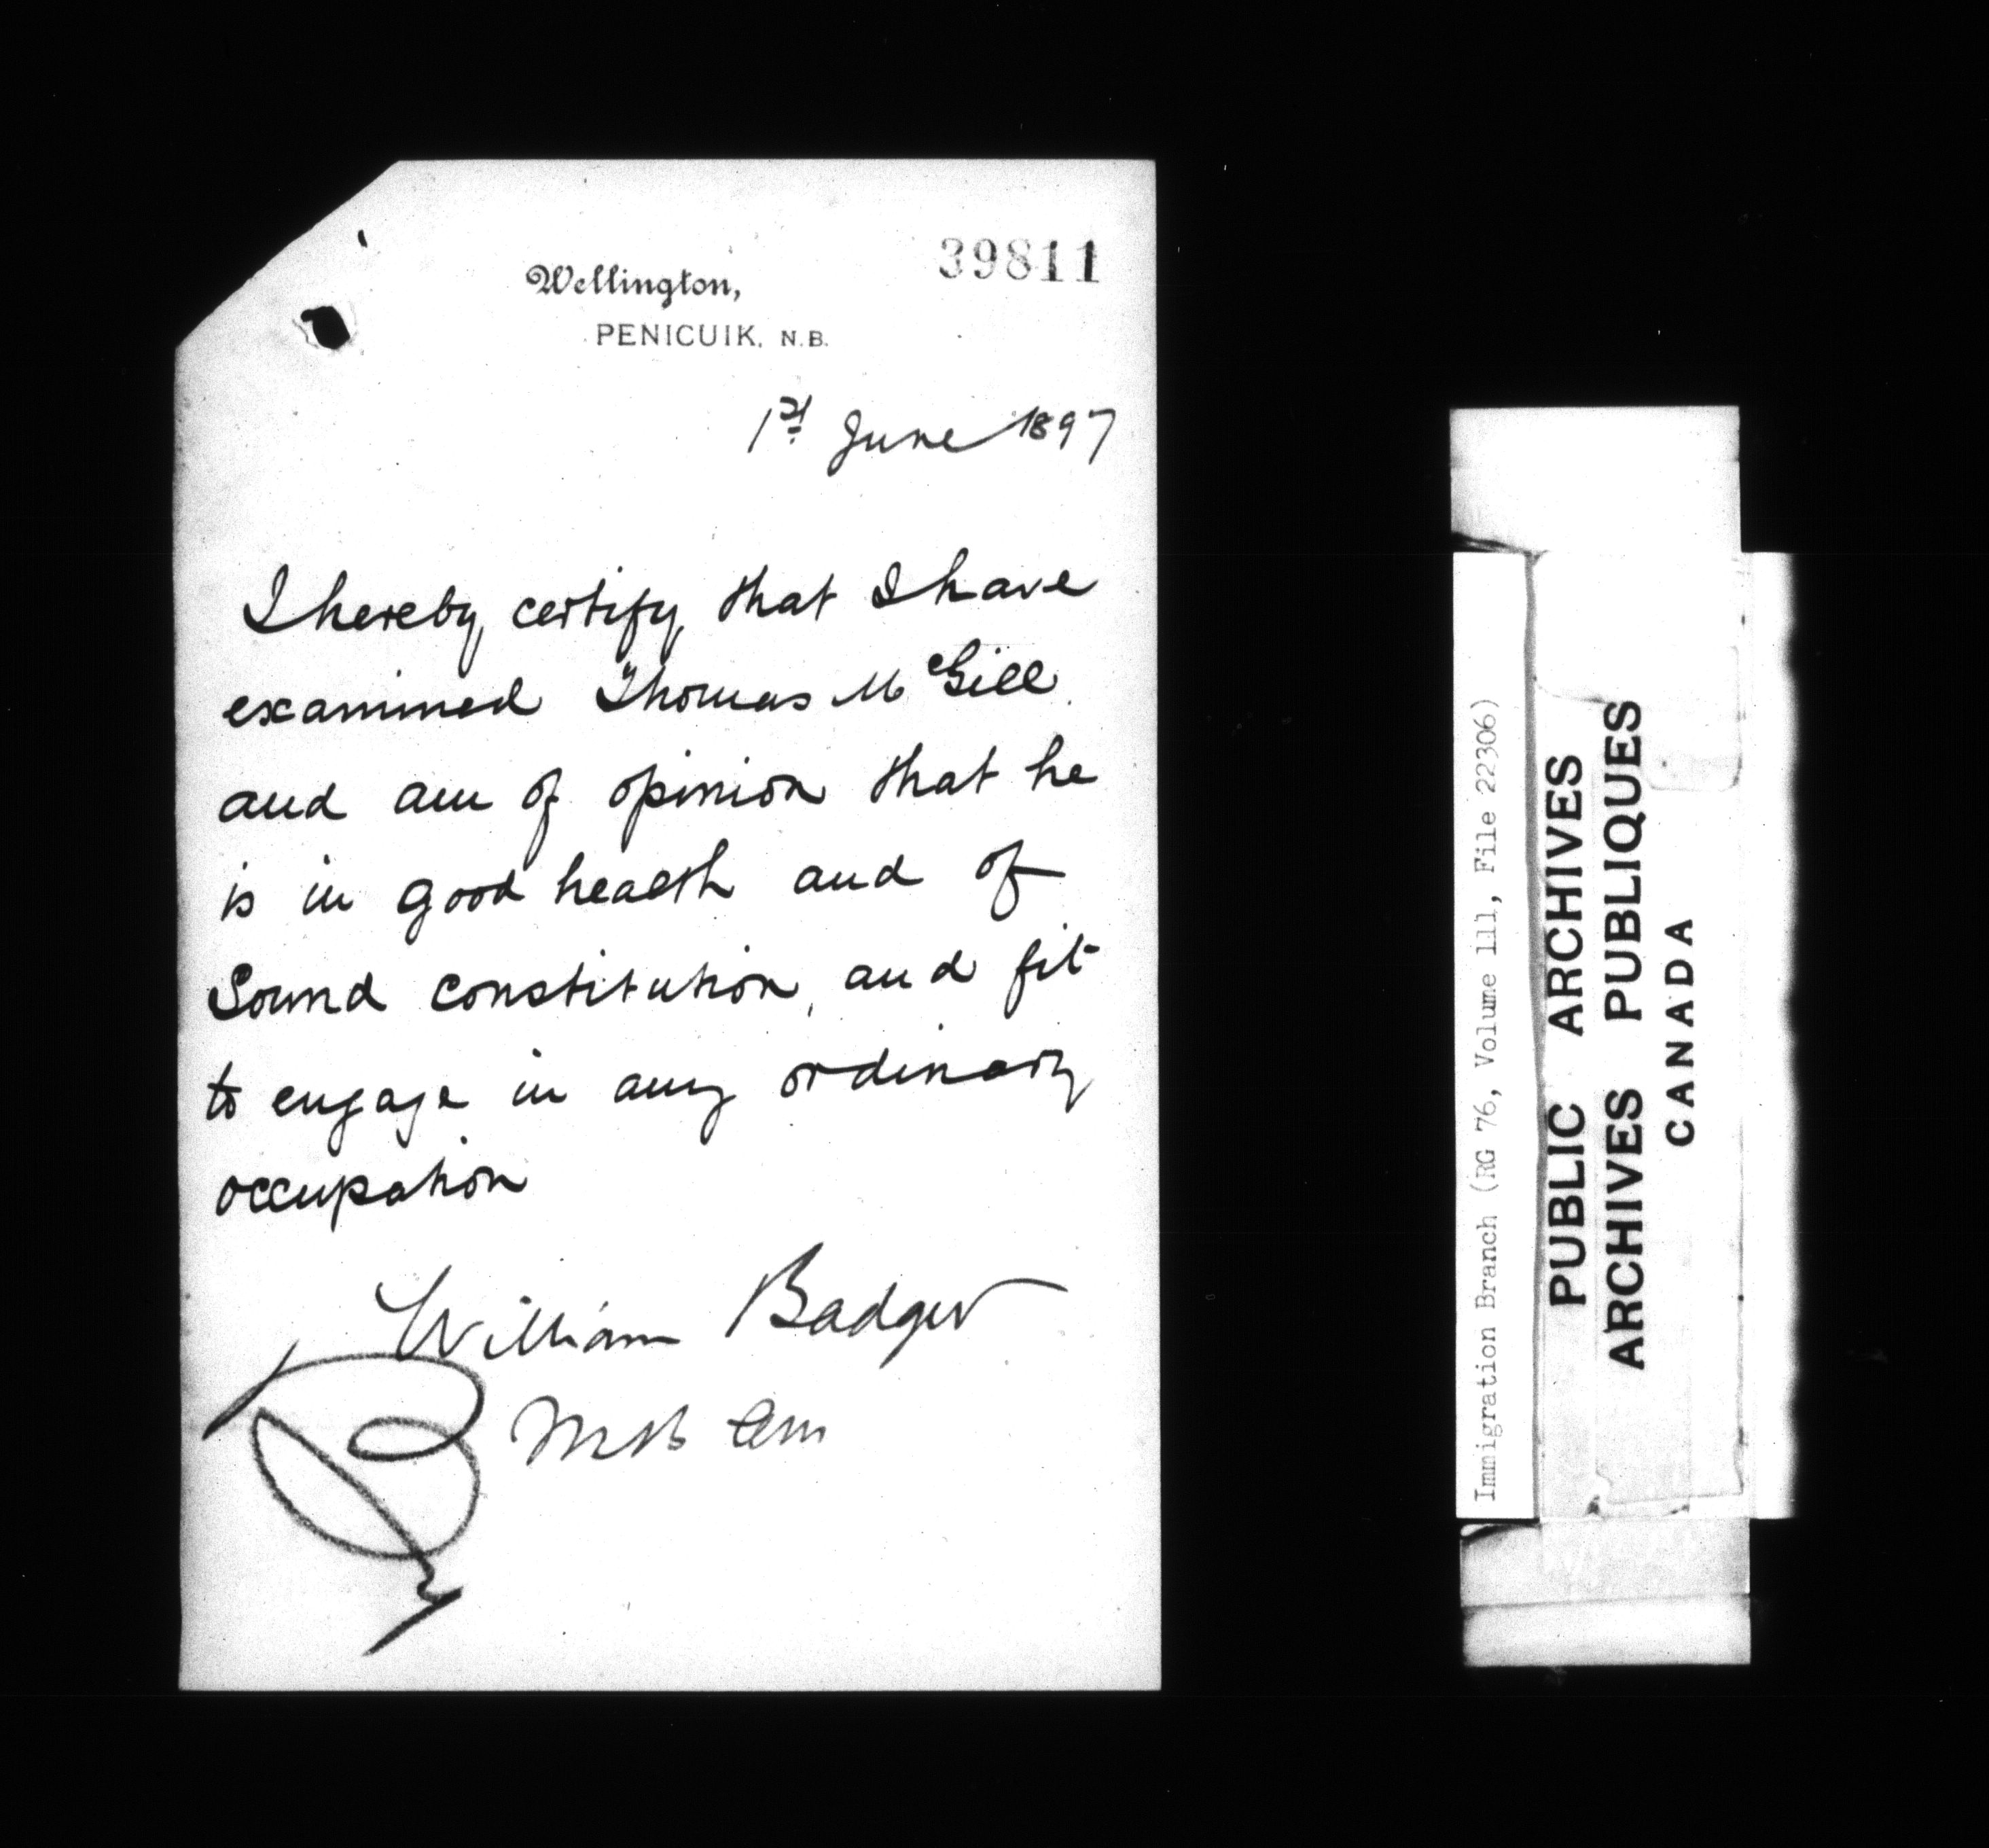 39811
Wellington,
PENICUIK, N.B.
1st June 1897
I hereby certify that I have
examined Thomas McGill
and am of opinion that he
is in good health and of
Sound constitution, and fit
to engage in any ordinary
occupation
William Badger
MB CM
Immigration Branch (RG 76, Volume 111, File 22306)
PUBLIC ARCHIVES
ARCHIVES PUBLIQUES
CANADA